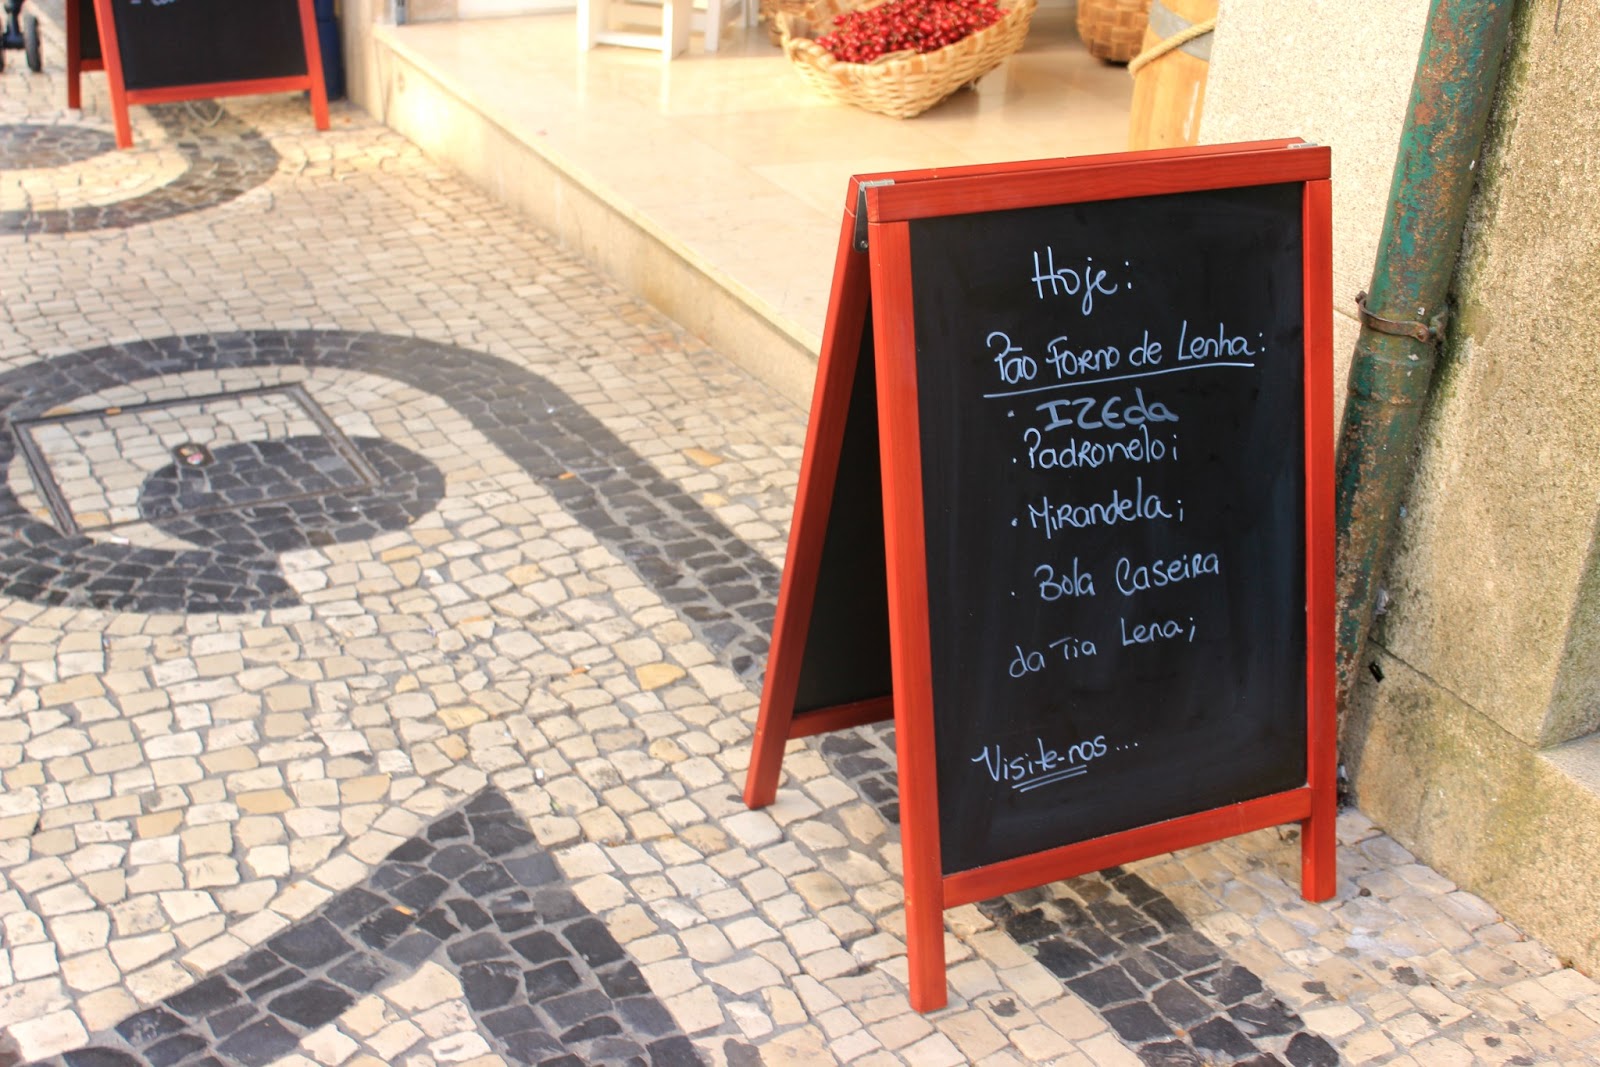 Hoje:
Pão Forno de Lenha:
· IZEda
· Padronelo;
· Mirandela;
· Bola Caseira
da Tia Lena;
Visite-nos...